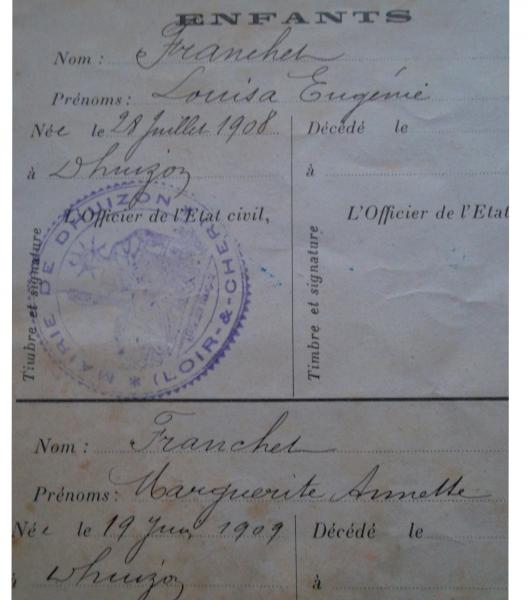 ENFANTS
Nom : Franchet
Prénoms : Louisa Eugénie
Née le 28 Juillet 1908
à Dhuizon
L'Officier de l'Etat civil,
Timbre et signature
MAIRIE DE DHUIZON * (LOIR-&-CHER) *
Décédé le
à
L'Officier de l'Etat
Timbre et signature
Nom : Franchet
Prénoms : Marguerite Annette
Née le 19 Juin 1909
à Dhuizon
Décédé le
à